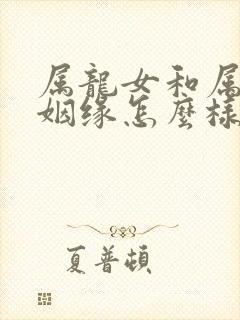 属龍女和属
姻缘怎麼樣
夏普頓